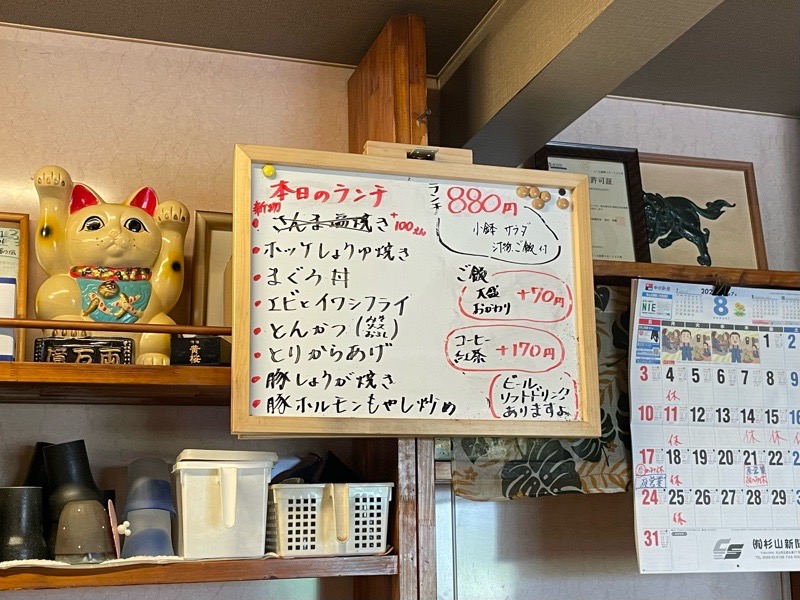 本日のランチ
新物
さんま塩焼き +100えん
ホッケしょうゆ焼き
まぐろ丼
エビとイワシフライ
とんかつ
とりからあげ
豚しょうが焼き
豚ホルモンもやし炒め
ランチ 880円
小鉢 サラダ
汁物、ご飯 付
ご飯
大盛
おかわり +70円
コーヒー
紅茶 +170円
ビール、
ソフトドリンク
ありますよ
許可証
千万両
黄桜
NIE
8
1 2
3 4 5 6 7 8 9
10 11 12 13 14 15 16
17 18 19 20 21 22 23
24 25 26 27 28 29
31
休
休
休 休 休
休
休
㈲杉山新聞